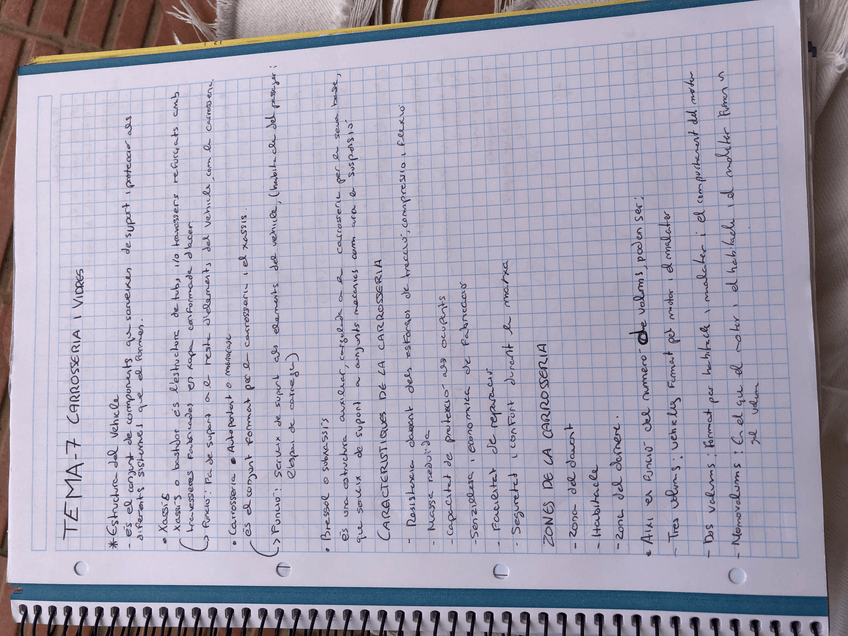 TEMA-7 CARROSSERIA I VIDRES
* Estructura del vehicle
- és el conjunt de components que serveixen de suport i protecció als
diferents sistemes que el formen.
• Xassís
Xassís o bastidor és l'estructura de tubs i/o travessers reforçats amb
travesseres fabricades en xapa conformada d'acer
↳ Funció: Fa de suport a la resta d'elements del vehicle, com la carrosseria.
• Carrosseria • Autoportant o monocasc
és el conjunt format per la carrosseria i el xassís.
↳ Funció: Serveix de suport als elements del vehicle, (habitacle del passatger i
l'espai de càrrega)
• Bressol o subxassís
és una estructura auxiliar, cargolada a la carrosseria per la seva base,
que serveix de suport a conjunts mecànics com ara la suspensió
CARACTERÍSTIQUES DE LA CARROSSERIA
- Resistència davant dels esforços de tracció, compressió i flexió
- Massa reduïda
- Capacitat de protecció als ocupants
- Senzillesa i econòmica de fabricació
- Facilitat de reparació
- Seguretat i confort durant la marxa
ZONES DE LA CARROSSERIA
- Zona del davant
- Habitacle
- Zona del darrere.
• Així en funció del numero de volums, poden ser:
- Tres volums: vehicles format pel motor el maleter
- Dos volums: Format per habitacle i maleter i el compartiment del motor
- Monovolums: en el que el motor i el habitacle i el maleter formen un
sol volum